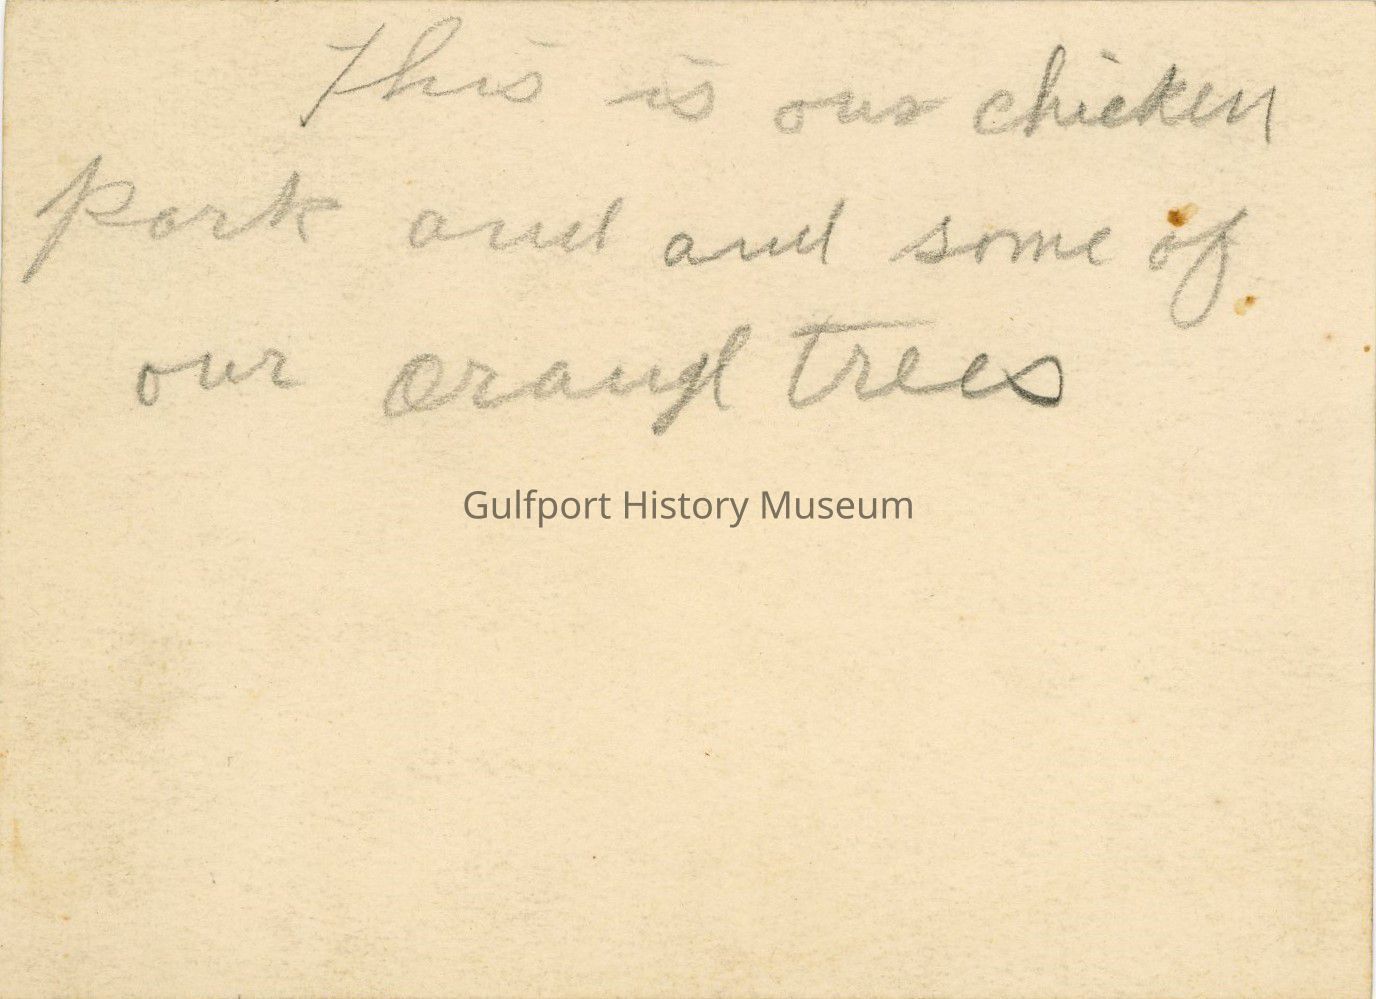 This is our chicken
park and and some of
our orange trees
Gulfport History Museum